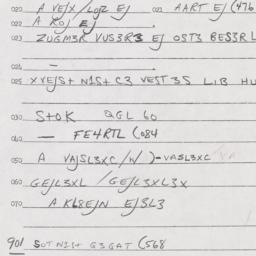 020 A VEJX/LOJZ EJ 021 AART EJ (476
022 A ROJ EJ
023 ZUGM3R VUS3R3 EJ OST3 BES3R L
024 —
025 XVEJS+ NIS+ C3 VEST3S LIB HU
030 S+OK QGL 60
040 — FE4RTL (084
050 A VAJSL3XC/W/)-VASL3XC
060 GEJL3XL / GEJL3XL3X
070 A KL8EJN EJSL3
901 SOTNIS+ G3GAT (568